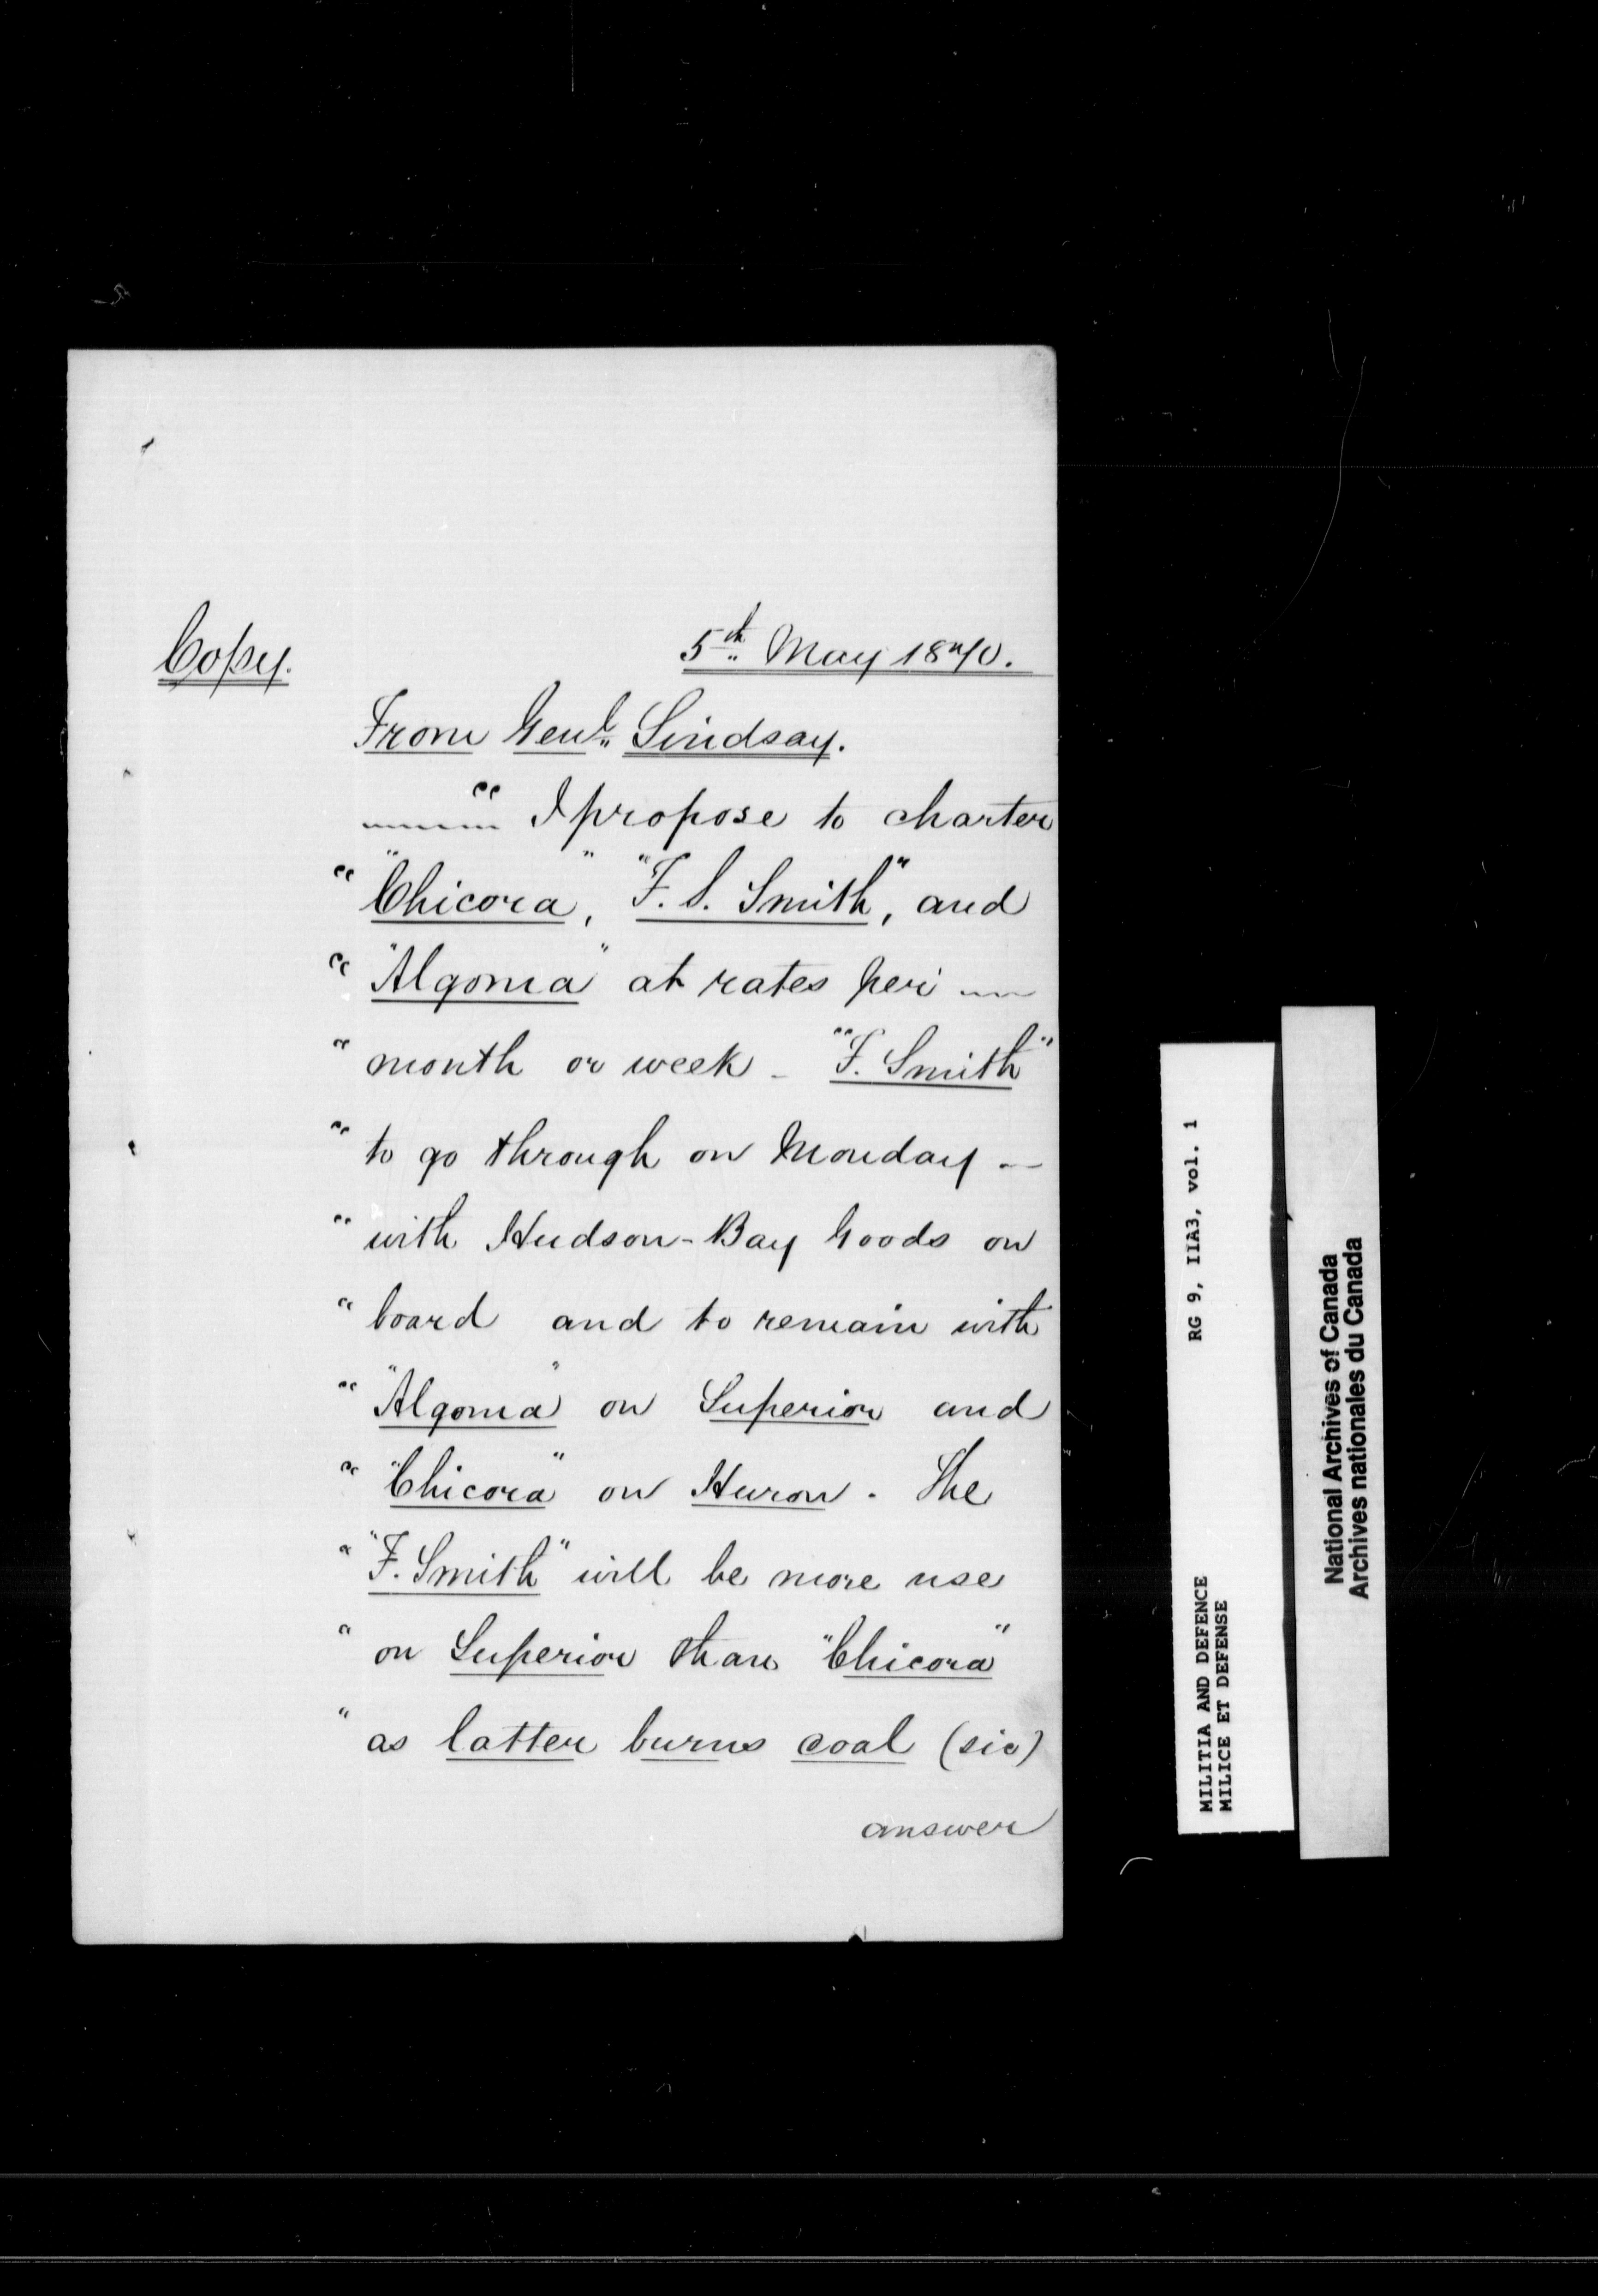 Copy.
5th May 1870.
From Genl. Lindsay.
" I propose to charter
" "Chicora", "F. S. Smith", and
" "Algoma" at rates per
" month or week - "F. Smith"
" to go through on Monday -
" with Hudson-Bay Goods on
" board and to remain with
" "Algoma" on Superior and
" "Chicora" on Huron. The
" "F. Smith" will be more use
" on Superior than "Chicora"
" as latter burns coal (sic)
answer
RG 9, IIA3, vol. 1
MILITIA AND DEFENCE
MILICE ET DEFENSE
National Archives of Canada
Archives nationales du Canada